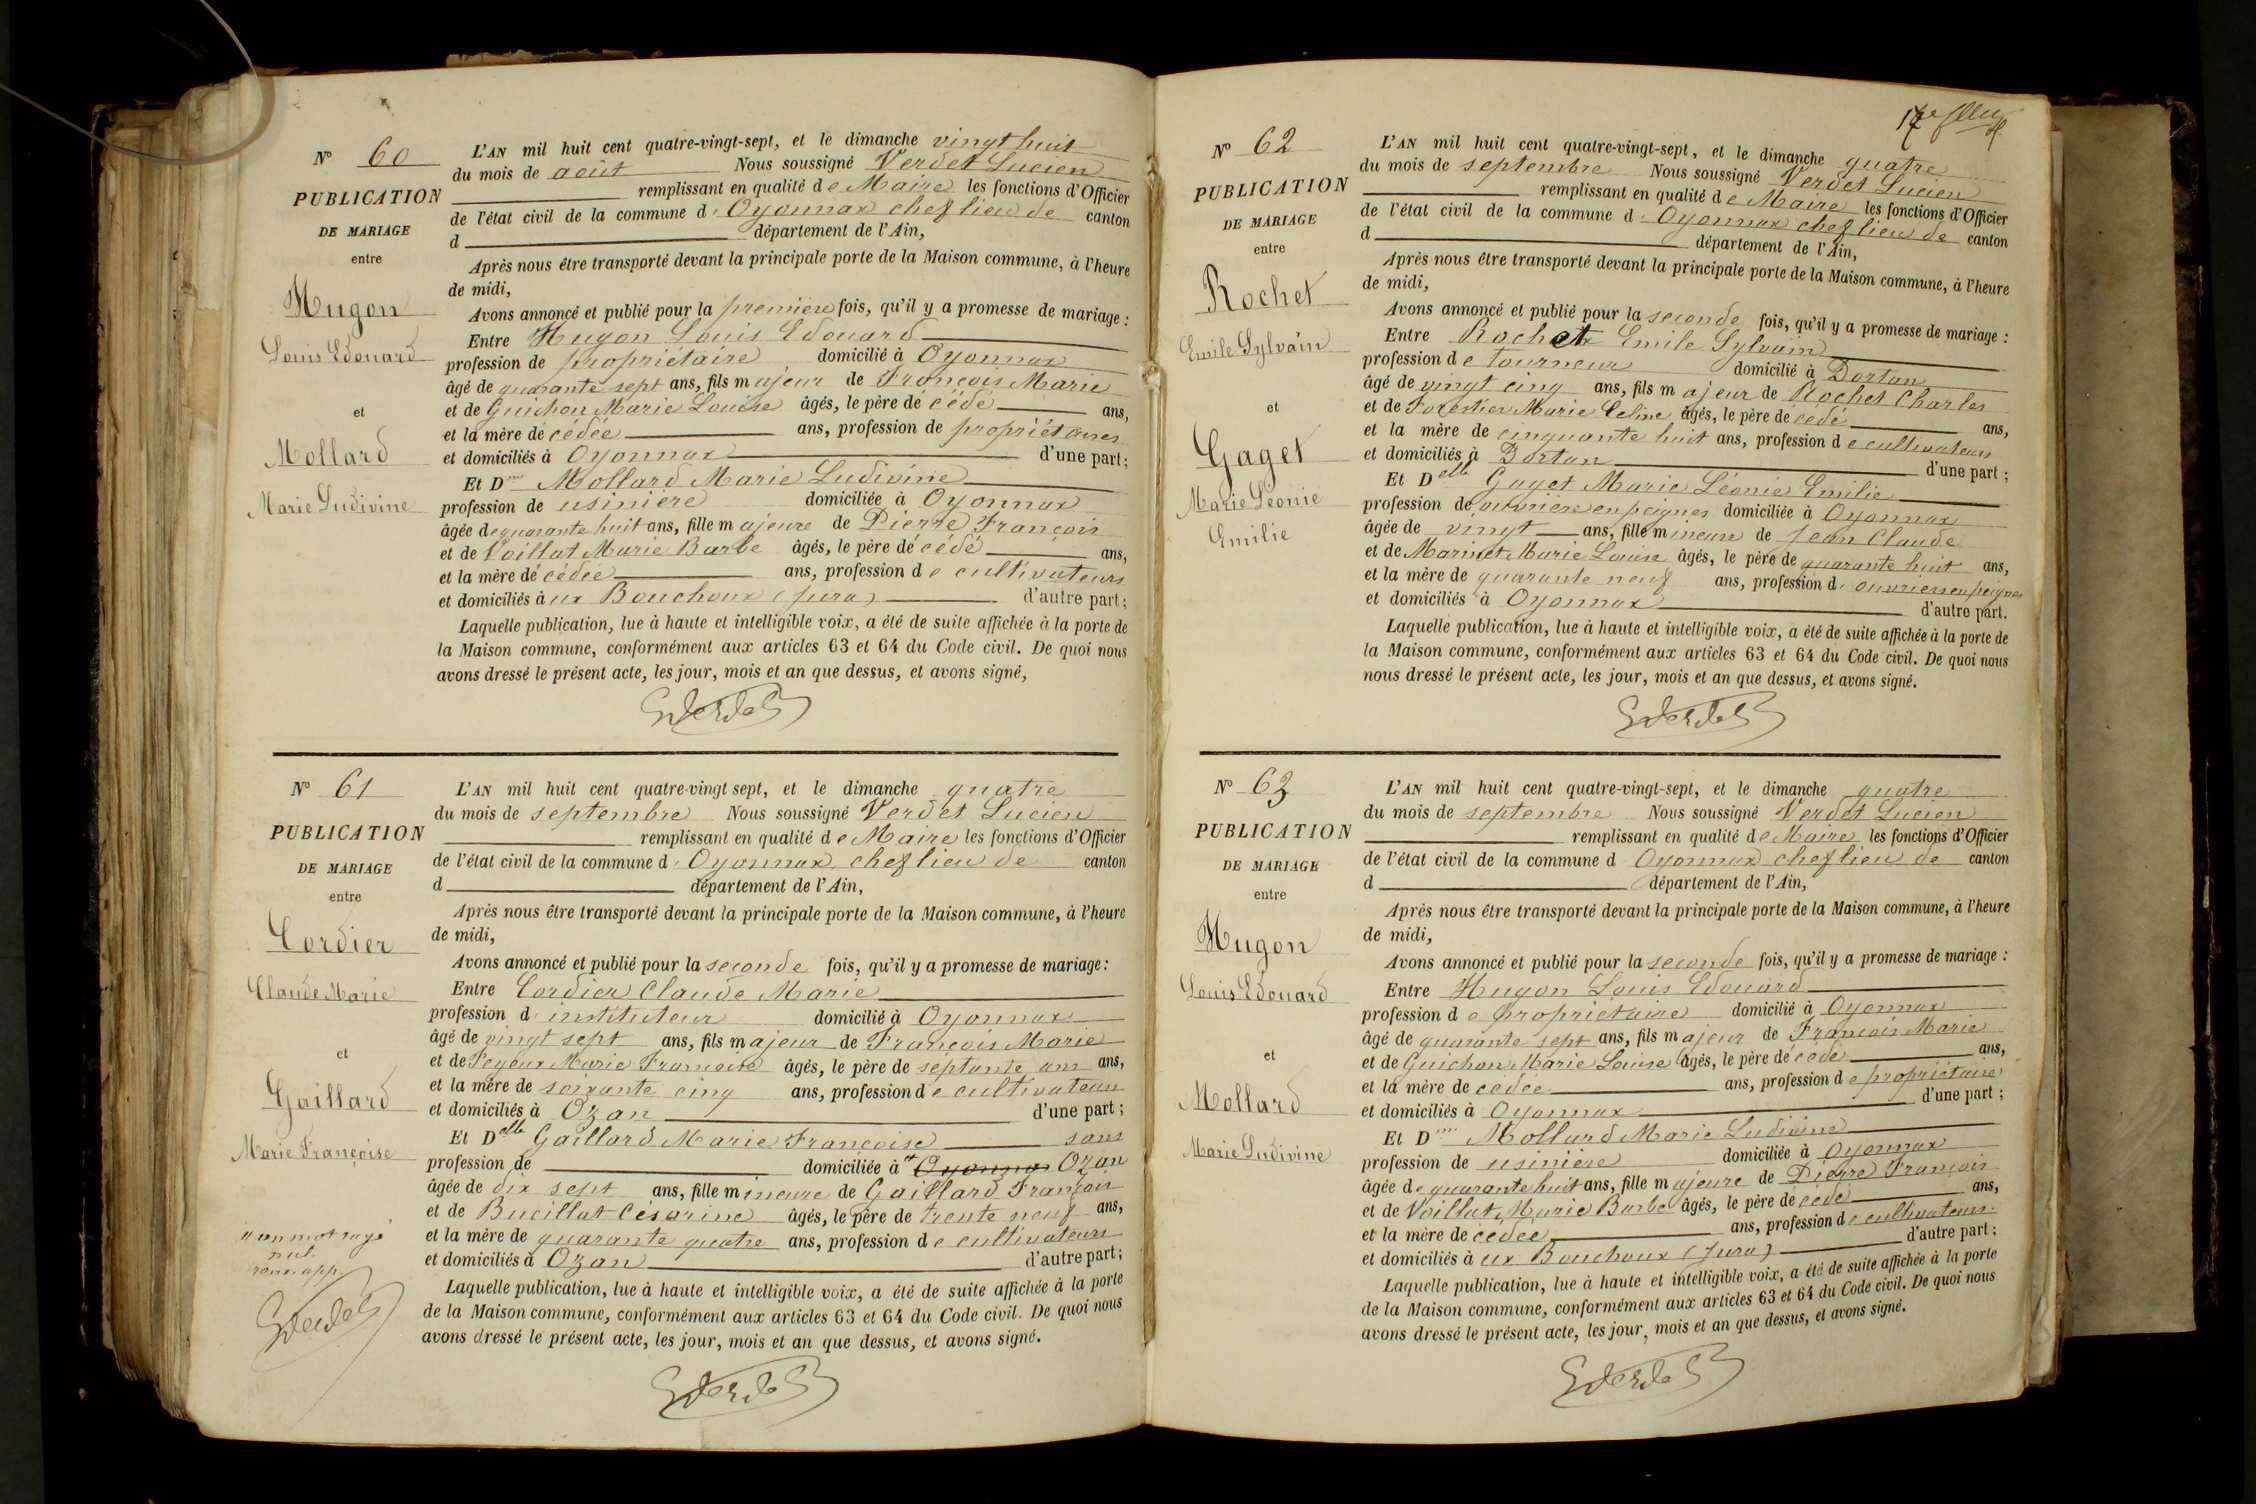 N° 60
PUBLICATION
DE MARIAGE
entre
Hugon
Louis Edouard
et
Mollard
Marie Ludivine
L'AN mil huit cent quatre-vingt-sept, et le dimanche vingt huit
du mois de août Nous soussigné Verdet Lucien
remplissant en qualité de Maire les fonctions d'Officier
de l'état civil de la commune d' Oyonnax chef lieu de canton
d département de l'Ain,
Après nous être transporté devant la principale porte de la Maison commune, à l'heure
de midi,
Avons annoncé et publié pour la première fois, qu'il y a promesse de mariage :
Entre Hugon Louis Edouard
profession de propriétaire domicilié à Oyonnax
âgé de quarante sept ans, fils majeur de François Marie
et de Guichon Marie Louise âgés, le père décédé ans,
et la mère décédée ans, profession de propriétaires
et domiciliés à Oyonnax d'une part;
Et D Mollard Marie Ludivine
profession de usinière domiciliée à Oyonnax
âgée de quarante huit ans, fille majeure de Pierre François
et de Voillat Marie Barbe âgés, le père décédé ans,
et la mère décédée ans, profession de cultivateurs
et domiciliés à ux Bouchoux (Jura) d'autre part;
Laquelle publication, lue à haute et intelligible voix, a été de suite affichée à la porte de
la Maison commune, conformément aux articles 63 et 64 du Code civil. De quoi nous
avons dressé le présent acte, les jour, mois et an que dessus, et avons signé,
N° 61
PUBLICATION
DE MARIAGE
entre
Cordier
Claude Marie
et
Gaillard
Marie Françoise
un mot rayé
nul
L'AN mil huit cent quatre-vingt sept, et le dimanche quatre
du mois de septembre Nous soussigné Verdet Lucien
remplissant en qualité de Maire les fonctions d'Officier
de l'état civil de la commune d' Oyonnax chef lieu de canton
d département de l'Ain,
Après nous être transporté devant la principale porte de la Maison commune, à l'heure
de midi,
Avons annoncé et publié pour la seconde fois, qu'il y a promesse de mariage:
Entre Cordier Claude Marie
profession d' instituteur domicilié à Oyonnax
âgé de vingt sept ans, fils majeur de François Marie
et de Feyeux Marie Françoise âgés, le père de septante ans,
et la mère de soixante cinq ans, profession de cultivateurs
et domiciliés à Ozan d'une part;
Et Delle Gaillard Marie Françoise sans
profession de domiciliée à Oyonnax Ozan
âgée de dix sept ans, fille mineure de Gaillard François
et de Bucillat Césarine âgés, le père de trente neuf ans,
et la mère de quarante quatre ans, profession de cultivateurs
et domiciliés à Ozan d'autre part;
Laquelle publication, lue à haute et intelligible voix, a été de suite affichée à la porte
de la Maison commune, conformément aux articles 63 et 64 du Code civil. De quoi nous
avons dressé le présent acte, les jour, mois et an que dessus, et avons signé.
N° 62
PUBLICATION
DE MARIAGE
entre
Rochet
Emile Sylvain
et
Gaget
Marie Léonie
Emilie
L'AN mil huit cent quatre-vingt-sept, et le dimanche quatre
du mois de septembre Nous soussigné Verdet Lucien
remplissant en qualité de Maire les fonctions d'Officier
de l'état civil de la commune d' Oyonnax chef lieu de canton
d département de l'Ain,
Après nous être transporté devant la principale porte de la Maison commune, à l'heure
de midi,
Avons annoncé et publié pour la seconde fois, qu'il y a promesse de mariage :
Entre Rochet Emile Sylvain
profession de tourneur domicilié à Dortan
âgé de vingt cinq ans, fils majeur de Rochet Charles
et de Forestier Marie Celine âgés, le père décédé ans,
et la mère de cinquante huit ans, profession de cultivateurs
et domiciliés à Dortan d'une part ;
Et Delle Gaget Marie Léonie Emilie
profession de ouvrière en peignes domiciliée à Oyonnax
âgée de vingt ans, fille mineure de Jean Claude
et de Marinet Marie Louise âgés, le père de quarante huit ans,
et la mère de quarante neuf ans, profession d' ouvriers en peignes
et domiciliés à Oyonnax d'autre part.
Laquelle publication, lue à haute et intelligible voix, a été de suite affichée à la porte de
la Maison commune, conformément aux articles 63 et 64 du Code civil. De quoi nous
nous dressé le présent acte, les jour, mois et an que dessus, et avons signé.
N° 63
PUBLICATION
DE MARIAGE
entre
Hugon
Louis Edouard
et
Mollard
Marie Ludivine
L'AN mil huit cent quatre-vingt-sept, et le dimanche quatre
du mois de septembre Nous soussigné Verdet Lucien
remplissant en qualité de Maire les fonctions d'Officier
de l'état civil de la commune d Oyonnax chef lieu de canton
d département de l'Ain,
Après nous être transporté devant la principale porte de la Maison commune, à l'heure
de midi,
Avons annoncé et publié pour la seconde fois, qu'il y a promesse de mariage :
Entre Hugon Louis Edouard
profession de propriétaire domicilié à Oyonnax
âgé de quarante sept ans, fils majeur de François Marie
et de Guichon Marie Louise âgés, le père décédé ans,
et la mère décédée ans, profession de propriétaires
et domiciliés à Oyonnax d'une part ;
Et D Mollard Marie Ludivine
profession de usinière domiciliée à Oyonnax
âgée de quarante huit ans, fille majeure de Pierre François
et de Voillat Marie Barbe âgés, le père décédé ans,
et la mère décédée ans, profession de cultivateurs
et domiciliés à ux Bouchoux (Jura) d'autre part ;
Laquelle publication, lue à haute et intelligible voix, a été de suite affichée à la porte
de la Maison commune, conformément aux articles 63 et 64 du Code civil. De quoi nous
avons dressé le présent acte, les jour, mois et an que dessus, et avons signé.